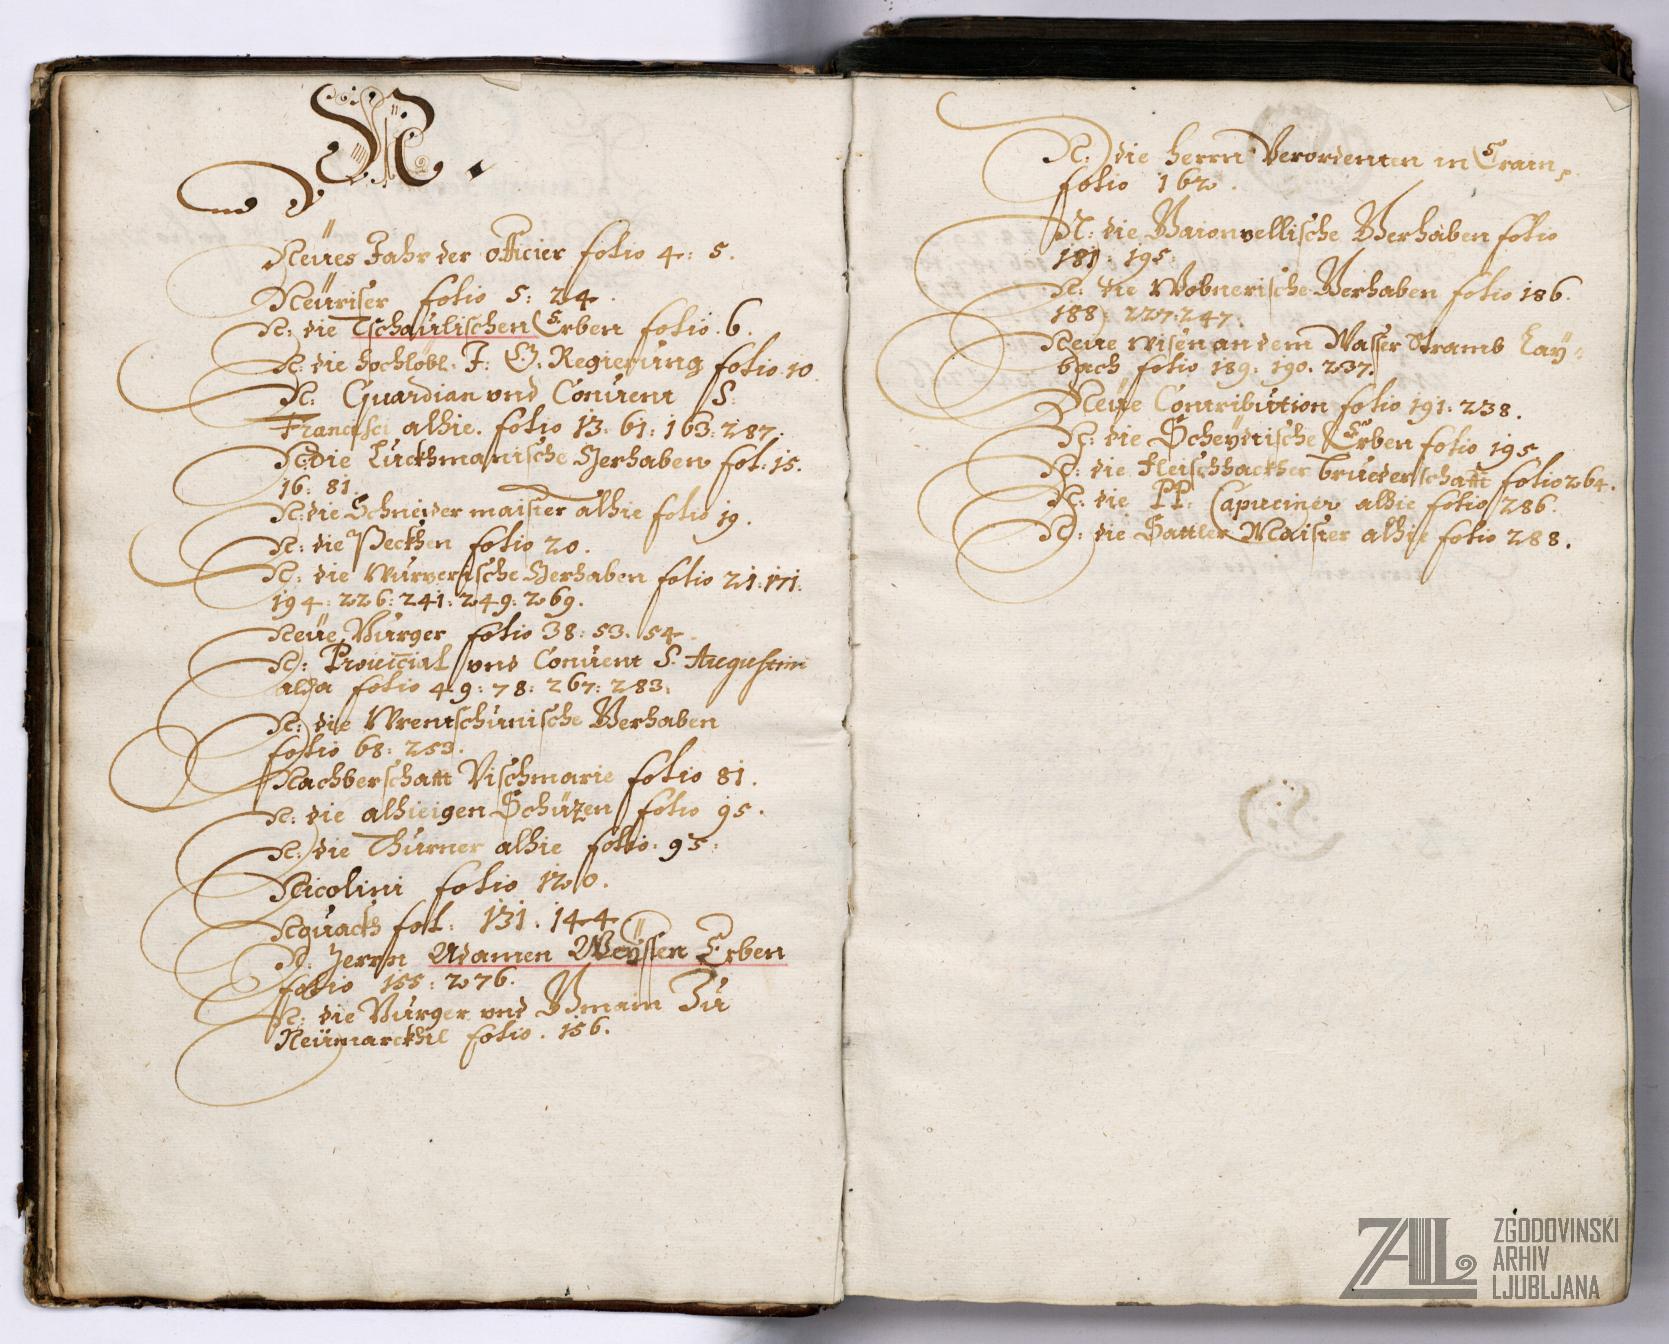 N.
Neües Jahr der officier folio 4: 5.
Neüriser folio 5: 24.
N: die Tschaulischen Erben folio. 6.
N: die hochlöbl. I: Ö: Regierung folio 10
N: Guardian vnd Conuent S:
Francisci alhie. folio 13: 61: 163: 287.
N: die Luckhmanische Gerhaben fol: 15.
16: 81.
N: die Schneider maister alhie folio 19.
N: die Peckhen folio 20.
N: die Gerhaben folio 21: 171.
194: 226: 241: 249: 269.
Neüe Burger folio 38: 53. 54.
N: Prouincial vnd Conuent S. Augustini
alda folio 49: 78: 267: 283.
N: die Wrentschunische Gerhaben
folio 68: 253.
Nachberschafft Vischmarie folio 81.
N: die alhieigen Schüzen folio 95.
N: die Thurner alhie folio: 95:
Nicolini folio 120.
fol: 131. 144
N. Herrn Adamen Weÿssen Erben
folio 155: 276.
N: die Burger vnd Gmain Zu
Neümarckhtl folio. 156.
N: die herrn Verordenten in Crain,
folio 162.
N: die Gerhaben folio
181: 195.
N: die Wobnerische Gerhaben folio 186.
188: 227: 247.
Neüe wisen an dem Wasser Stramb Laÿ-
bach folio 189: 190. 237.
Neüe Contribution folio 191: 238.
N: die Erben folio 195
N: die fleischhackher bruederschafft folio 264.
N: die PP: Capuciner alhie folio 286.
N: die Sattler Maister alhie folio 288.
ZAL
ZGODOVINSKI
ARHIV
LJUBLJANA